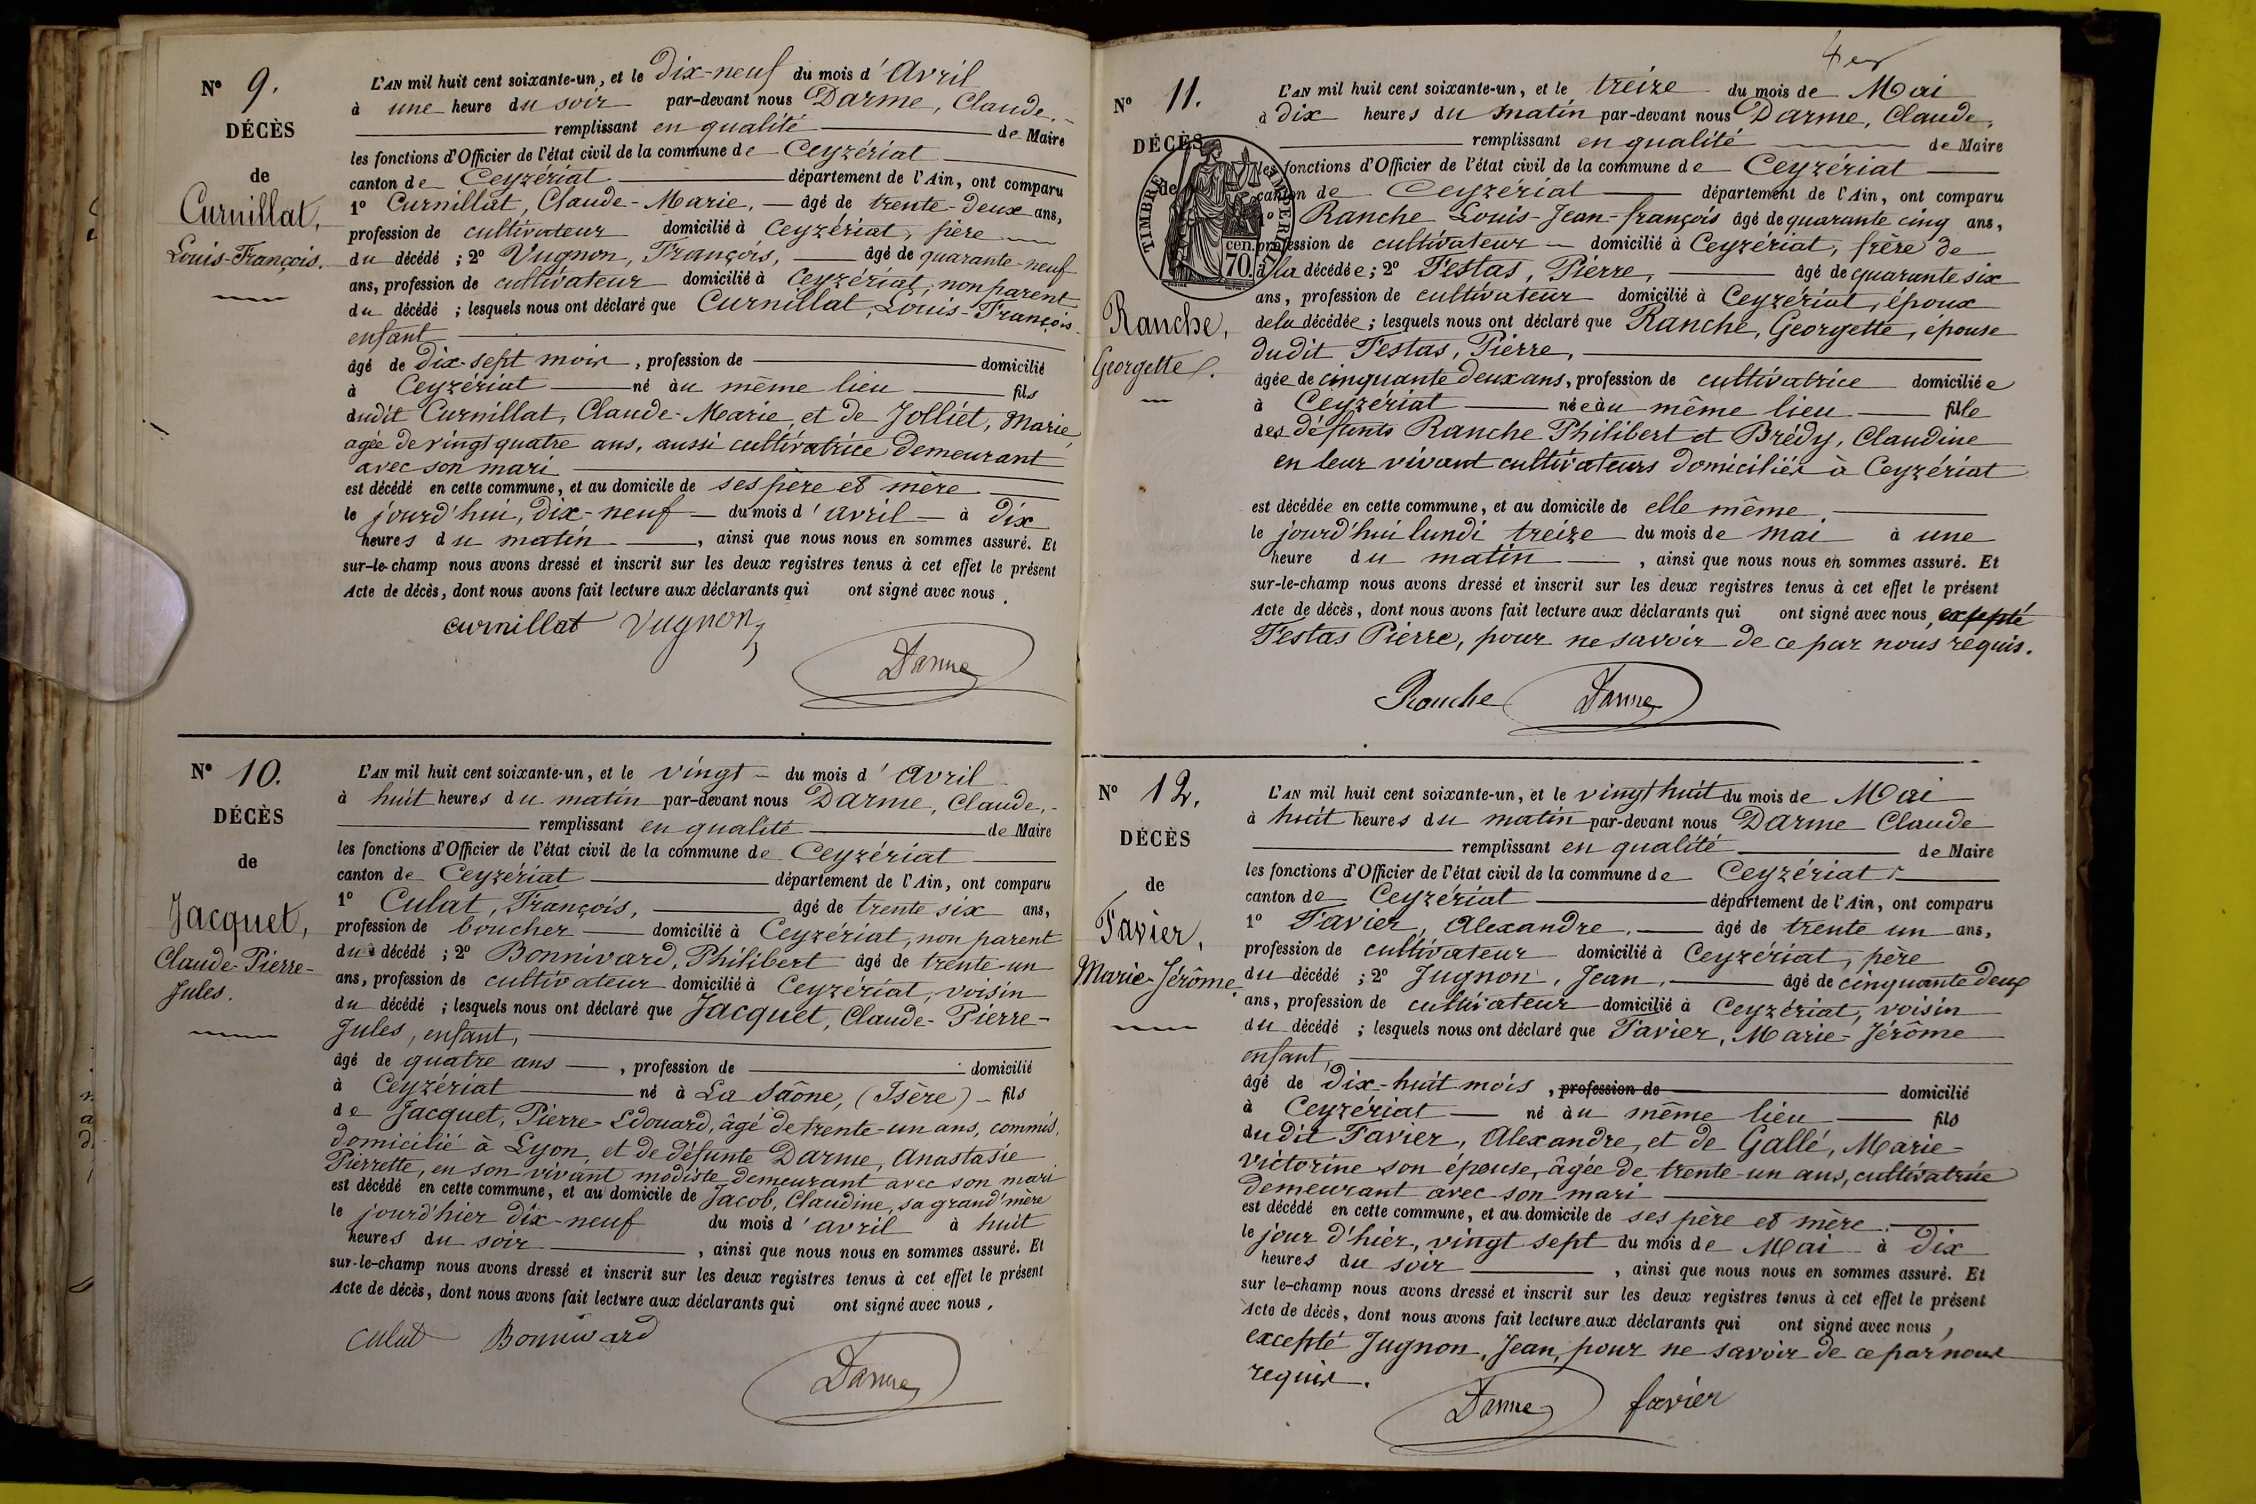 N° 9.
DÉCÈS
de
Curnillat,
Louis-François.
L'AN mil huit cent soixante-un, et le Dix-neuf du mois d'Avril
à une heure du soir par-devant nous Darme, Claude,
remplissant en qualité de Maire
les fonctions d'Officier de l'état civil de la commune de Ceyzériat
canton de Ceyzériat département de l'Ain, ont comparu
1° Curnillat, Claude-Marie, âgé de trente-deux ans,
profession de cultivateur domicilié à Ceyzériat, père
du décédé ; 2° Vugnon, François, âgé de quarante-neuf
ans, profession de cultivateur domicilié à Ceyzériat, non parent
du décédé ; lesquels nous ont déclaré que Curnillat, Louis-François
enfant
âgé de Dix-sept mois, profession de domicilié
à Ceyzériat né au même lieu fils
dudit Curnillat, Claude-Marie, et de Jolliet, Marie,
agée de vingt quatre ans, aussi cultivatrice Demeurant
avec son mari
est décédé en cette commune, et au domicile de ses père et mère
le jourd'hui, dix-neuf du mois d'avril à dix
heures du matin, ainsi que nous nous en sommes assuré. Et
sur-le-champ nous avons dressé et inscrit sur les deux registres tenus à cet effet le présent
Acte de décès, dont nous avons fait lecture aux déclarants qui ont signé avec nous.
curnillat Vugnon
Darme
N° 10.
DÉCÈS
de
Jacquet,
Claude-Pierre-
Jules.
L'AN mil huit cent soixante-un, et le vingt du mois d'Avril
à huit heures du matin par-devant nous Darme, Claude,
remplissant en qualité de Maire
les fonctions d'Officier de l'état civil de la commune de Ceyzériat
canton de Ceyzériat département de l'Ain, ont comparu
1° Culat, François, âgé de trente six ans,
profession de boucher domicilié à Ceyzériat, non parent
du décédé ; 2° Bonnivard, Philibert âgé de trente-un
ans, profession de cultivateur domicilié à Ceyzériat, voisin
du décédé ; lesquels nous ont déclaré que Jacquet, Claude-Pierre-
Jules, enfant,
âgé de quatre ans, profession de domicilié
à Ceyzériat né à La Saône, (Isère) fils
de Jacquet, Pierre-Edouard, âgé de trente-un ans, commis,
domicilié à Lyon, et de défunte Darme, Anastasie
Pierrette, en son vivant modiste demeurant avec son mari
est décédé en cette commune, et au domicile de Jacob, Claudine, sa grand'mère
le jourd'hier dix-neuf du mois d'avril à huit
heures du soir, ainsi que nous nous en sommes assuré. Et
sur-le-champ nous avons dressé et inscrit sur les deux registres tenus à cet effet le présent
Acte de décès, dont nous avons fait lecture aux déclarants qui ont signé avec nous.
Culat Bonnivard
Darme
N° 11.
DÉCÈS
de
TIMBRE IMPÉRIAL
70 cen.
Ranche,
Georgette.
L'AN mil huit cent soixante-un, et le treize du mois de Mai
à dix heures du matin par-devant nous Darme, Claude,
remplissant en qualité de Maire
les fonctions d'Officier de l'état civil de la commune de Ceyzériat
canton de Ceyzériat département de l'Ain, ont comparu
1° Ranche Louis-Jean-françois âgé de quarante cinq ans,
profession de cultivateur domicilié à Ceyzériat, frère de
la décédée ; 2° Festas, Pierre, âgé de quarante six
ans, profession de cultivateur domicilié à Ceyzériat, époux
de la décédée ; lesquels nous ont déclaré que Ranche, Georgette, épouse
dudit Festas, Pierre,
âgée de cinquante deux ans, profession de cultivatrice domiciliée
à Ceyzériat née au même lieu fille
des défunts Ranche Philibert et Brédy, Claudine
en leur vivant cultivateurs domiciliés à Ceyzériat
est décédée en cette commune, et au domicile de elle même
le jourd'hui lundi treize du mois de mai à une
heure du matin, ainsi que nous nous en sommes assuré. Et
sur-le-champ nous avons dressé et inscrit sur les deux registres tenus à cet effet le présent
Acte de décès, dont nous avons fait lecture aux déclarants qui ont signé avec nous, excepté
Festas Pierre, pour ne savoir de ce par nous requis.
Ranche Darme
N° 12.
DÉCÈS
de
Favier,
Marie-Jérôme.
L'AN mil huit cent soixante-un, et le vingt huit du mois de Mai
à huit heures du matin par-devant nous Darme Claude
remplissant en qualité de Maire
les fonctions d'Officier de l'état civil de la commune de Ceyzériat
canton de Ceyzériat département de l'Ain, ont comparu
1° Favier, Alexandre, âgé de trente un ans,
profession de cultivateur domicilié à Ceyzériat, père
du décédé ; 2° Jugnon, Jean, âgé de cinquante deux
ans, profession de cultivateur domicilié à Ceyzériat, voisin
du décédé ; lesquels nous ont déclaré que Favier, Marie-Jérôme
enfant,
âgé de Dix-huit mois, profession de domicilié
à Ceyzériat né au même lieu fils
dudit Favier, Alexandre, et de Gallé, Marie-
Victorine son épouse, âgée de trente-un ans, cultivatrice
demeurant avec son mari
est décédé en cette commune, et au domicile de ses père et mère
le jour d'hier, vingt sept du mois de Mai à Dix
heures du soir, ainsi que nous nous en sommes assuré. Et
sur le-champ nous avons dressé et inscrit sur les deux registres tenus à cet effet le présent
Acte de décès, dont nous avons fait lecture aux déclarants qui ont signé avec nous,
excepté Jugnon, Jean, pour ne savoir de ce par nous
requis.
Darme favier